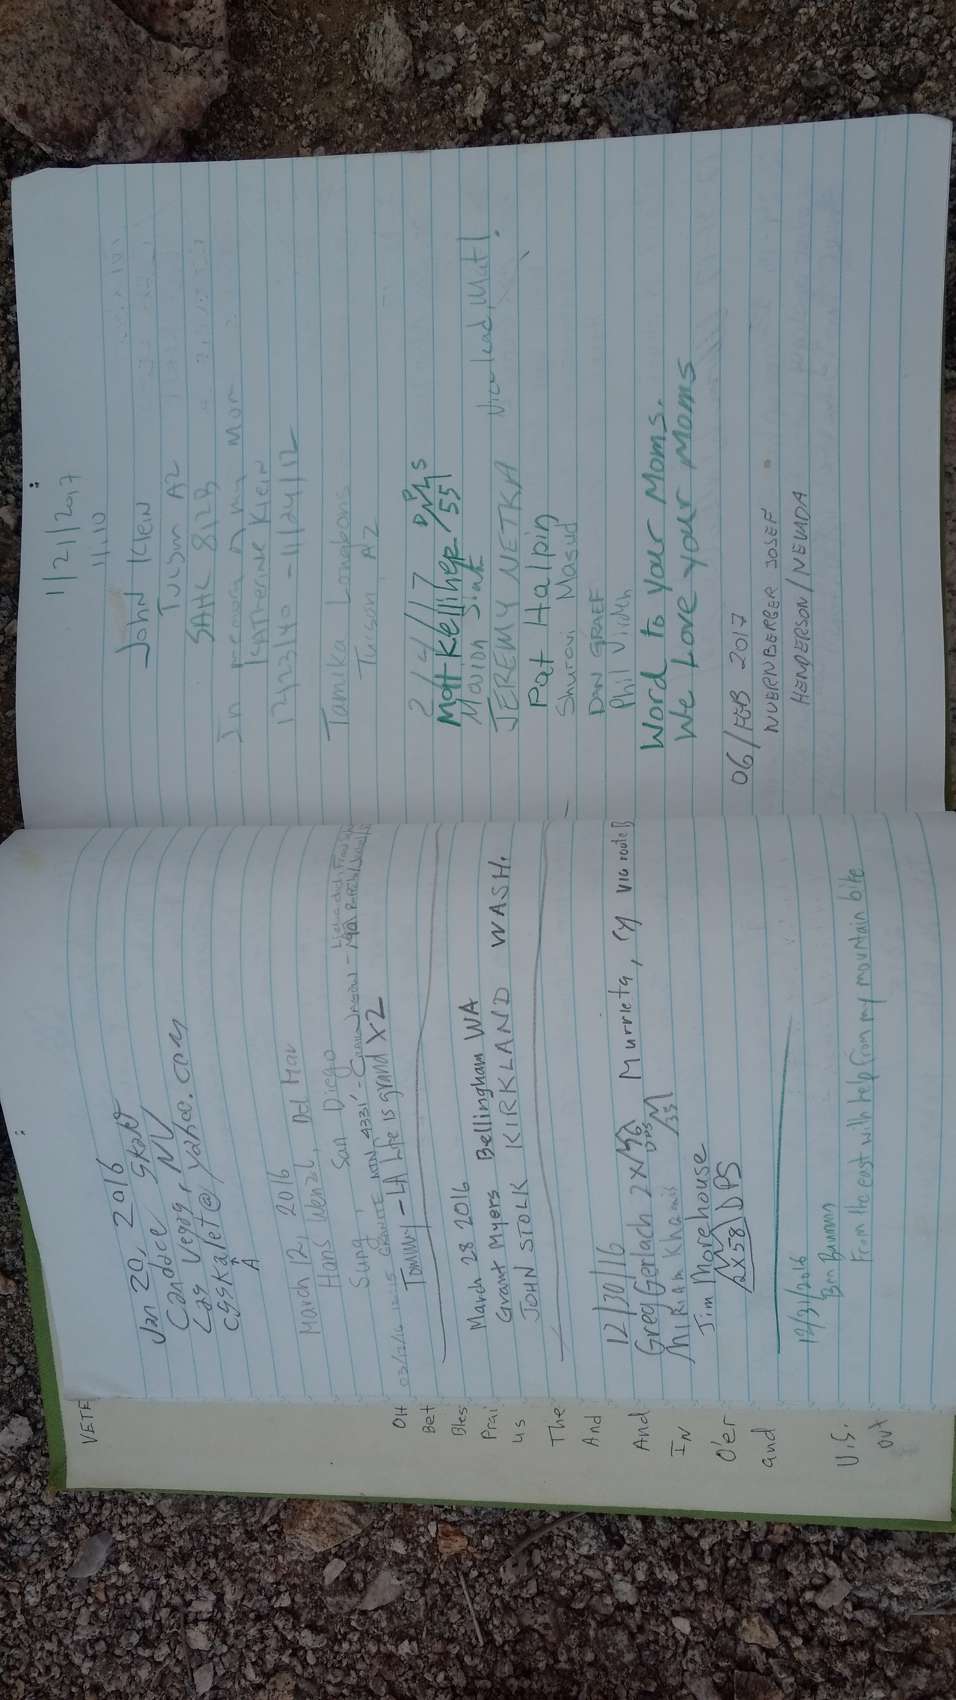 VETE
OH
Bet
Bles
Prai
us
The
And
And
IN
O'er
and
U.S.
out
Jan 20, 2016
Candace Skalet
Las Vegas, NV
cgskalet@yahoo.com
A
March 12, 2016
Hans Wenzl, Del Mar
Sung, San Diego
03/12/16 GRANITE MTN 4331'
Tommy - LA Life is grand X2
March 28 2016
Grant Myers Bellingham WA
JOHN STOLK KIRKLAND WASH.
12/30/16
Greg Gerlach 2x Murrieta, via route B
MIRIAM Khamis DPS
Jim Morehouse
2x58 DPS
12/31/2016
Ben
From the east with help from my mountain bike
1/21/2017
11:10
John Klein
Tucson AZ
SAHC
In memory of my mom
KATHERINE KLEIN
12/23/40 - 11/24/12
Tamika Longbons
Tucson AZ
2/4/17
Matt Kelliher DPS /551
JEREMY NETKA Nice lead, Mat!
Pat Halpin
Shuravi Masud
DAN GRAEF
Phil
Word to your Moms.
We Love your Moms
06/FEB 2017
NUERNBERGER JOSEF
HENDERSON/NEVADA